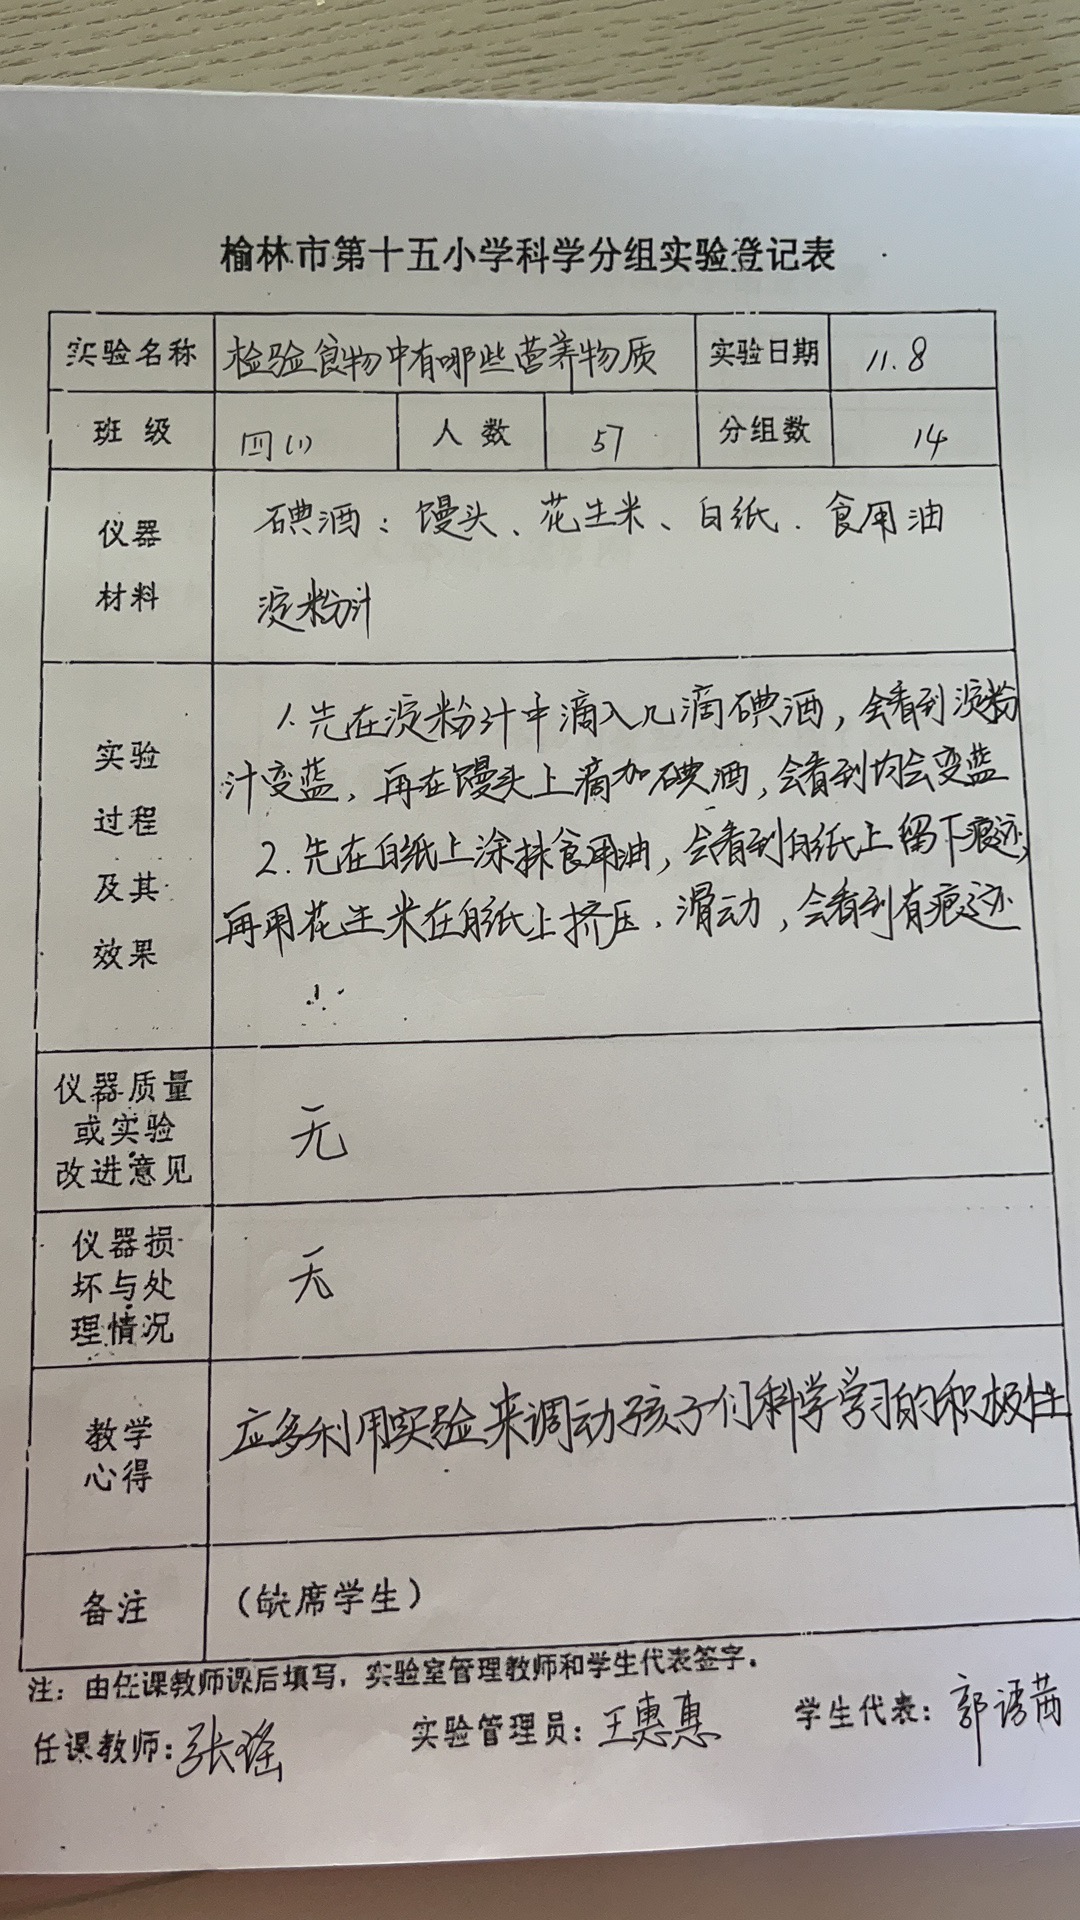 榆林市第十五小学科学分组实验登记表
实验名称 检验食物中有哪些营养物质 实验日期 11.8
班级 四(1) 人数 57 分组数 14
仪器
材料
碘酒：馒头、花生米、白纸．食用油
淀粉汁
实验
过程
及其
效果
1.先在淀粉汁中滴入几滴碘酒，会看到淀粉
汁变蓝，再在馒头上滴加碘酒，会看到均会变蓝
2.先在白纸上涂抹食用油，会看到白纸上留下痕迹，
再用花生米在白纸上挤压．滑动，会看到有痕迹
仪器质量
或实验
改进意见
无
仪器损
坏与处
理情况
无
教学
心得
应多利用实验来调动孩子们科学学习的积极性
备注 （缺席学生）
注：由任课教师课后填写，实验室管理教师和学生代表签字。
任课教师：张瑶 实验管理员：王惠惠 学生代表：郭